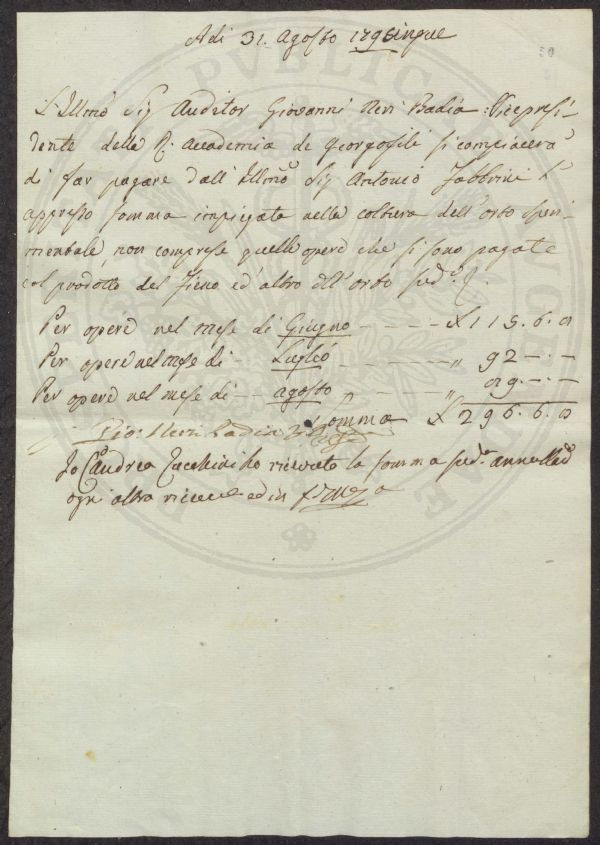 Adi 31. Agosto 179cinque
L'Illmo Sig Auditor Giovanni Neri Badia Vicepresi-
dente della R. Accademia de Georgofili si compiacerà
di far pagare dall Illmo Sig Antonio Fabbrini L'
appresso somma impiegata nella coltura dell'orto speri-
mentale, non comprese quelle opere che si sono pagate
col prodotto del fieno ed' altro dll' orto sud.
Per opere nel mese di Giugno - - - - £ 115. 6. 8
Per opere nel mese di - - Luglio - - - - " 92 - . -
Per opere nel mese di - - agosto - - - - " 89. - . -
Somma £ 296. 6. 8
Gio: Neri Badia
Io Andrea Zucchini ho ricevuto la somma sud.
ogni altra ed in